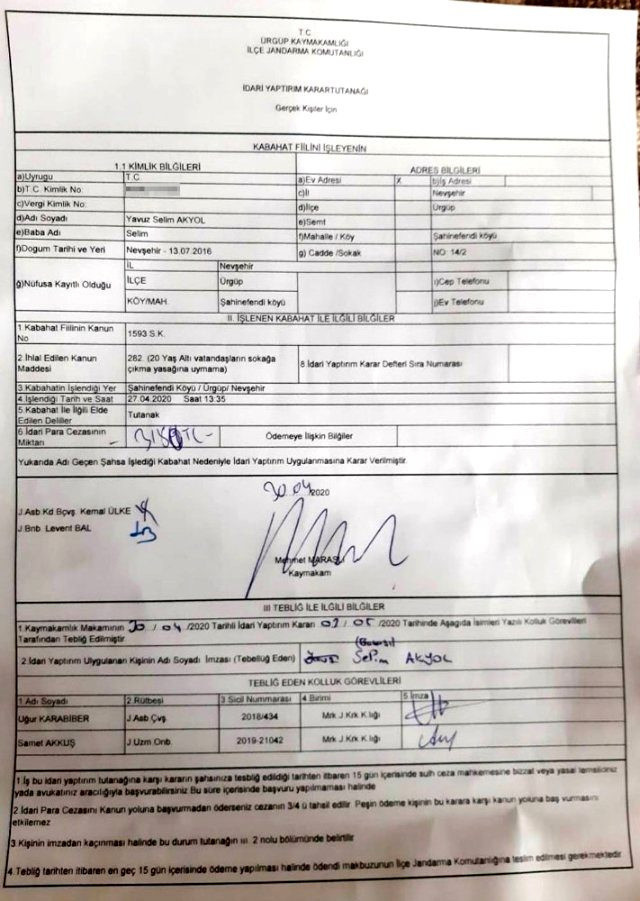 T.C
ÜRGÜP KAYMAKAMLIĞI
İLÇE JANDARMA KOMUTANLIĞI
İDARİ YAPTIRIM KARARTUTANAĞI
Gerçek Kişiler İçin
KABAHAT FİİLİNİ İŞLEYENİN
1.1 KİMLİK BİLGİLERİ ADRES BİLGİLERİ
a)Uyruğu T.C. a)Ev Adresi X b)İş Adresi
b)T.C. Kimlik No: c)İl Nevşehir
c)Vergi Kimlik No: d)İlçe Ürgüp
d)Adı Soyadı Yavuz Selim AKYOL e)Semt
e)Baba Adı Selim f)Mahalle / Köy Şahinefendi köyü
f)Doğum Tarihi ve Yeri Nevşehir - 13.07.2016 g) Cadde /Sokak NO: 14/2
ğ)Nüfusa Kayıtlı Olduğu
İL Nevşehir
İLÇE Ürgüp ı)Cep Telefonu
KÖY/MAH. Şahinefendi köyü i)Ev Telefonu
II. İŞLENEN KABAHAT İLE İLGİLİ BİLGİLER
1.Kabahat Fiilinin Kanun No 1593 S.K.
2.İhlal Edilen Kanun Maddesi 282. (20 Yaş Altı vatandaşların sokağa çıkma yasağına uymama) 8 İdari Yaptırım Karar Defteri Sıra Numarası
3.Kabahatin İşlendiği Yer Şahinefendi Köyü / Ürgüp/ Nevşehir
4.İşlendiği Tarih ve Saat 27.04.2020 Saat 13:35
5.Kabahat İle İlgili Elde Edilen Deliller Tutanak
6.İdari Para Cezasının Miktarı TL- Ödemeye İlişkin Bilgiler
Yukarıda Adı Geçen Şahsa İşlediği Kabahat Nedeniyle İdari Yaptırım Uygulanmasına Karar Verilmiştir
30.04/2020
J.Asb Kd Bçvş. Kemal ÜLKE
J.Bnb. Levent BAL
Mehmet MARAŞLI
Kaymakam
III TEBLİĞ İLE İLGİLİ BİLGİLER
1.Kaymakamlık Makamının 30 / 04 /2020 Tarihli İdari Yaptırım Kararı 01 / 05 /2020 Tarihinde Aşağıda İsimleri Yazılı Kolluk Görevlileri
Tarafından Tebliğ Edilmiştir
2.İdari Yaptırım Uygulanan Kişinin Adı Soyadı İmzası (Tebellüğ Eden) Selim AKYOL
TEBLİĞ EDEN KOLLUK GÖREVLİLERİ
1 Adı Soyadı 2.Rütbesi 3 Sicil Numarası 4 Birimi 5 İmza
Uğur KARABİBER J.Asb Çvş. 2018/434 Mrk J.Krk K.lığı
Samet AKKUŞ J.Uzm.Onb. 2019-21042 Mrk J.Krk K.lığı
1.İş bu idari yaptırım tutanağına karşı kararın şahsınıza tesbliğ edildiği tarihten itibaren 15 gün içerisinde sulh ceza mahkemesine bizzat veya yasal temsilciniz
yada avukatınız aracılığıyla başvurabilirsiniz Bu süre içerisinde başvuru yapılmaması halinde
2.İdari Para Cezasını Kanun yoluna başvurmadan öderseniz cezanın 3/4 ü tahsil edilir. Peşin ödeme kişinin bu karara karşı kanun yoluna baş vurmasını
etkilemez
3.Kişinin imzadan kaçınması halinde bu durum tutanağın III. 2 nolu bölümünde belirtilir
4.Tebliğ tarihten itibaren en geç 15 gün içerisinde ödeme yapılması halinde ödendi makbuzunun İlçe Jandarma Komutanlığına teslim edilmesi gerekmektedir.